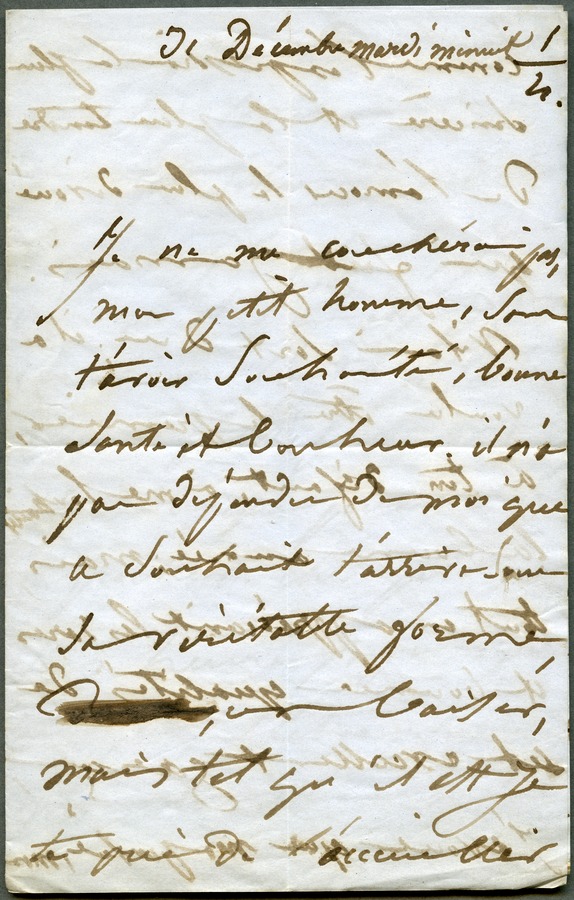 31 Décembre mardi minuit 1/4.
Je ne me coucherai pas,
mon petit homme, sans
t'avoir souhaité, bonne
santé et bonheur. il n'a
pas dépendu de moi que
ce souhait t'arrive sous
sa véritable forme,
un baiser,
mais tel qu'il est je
te prie de l'accueillir